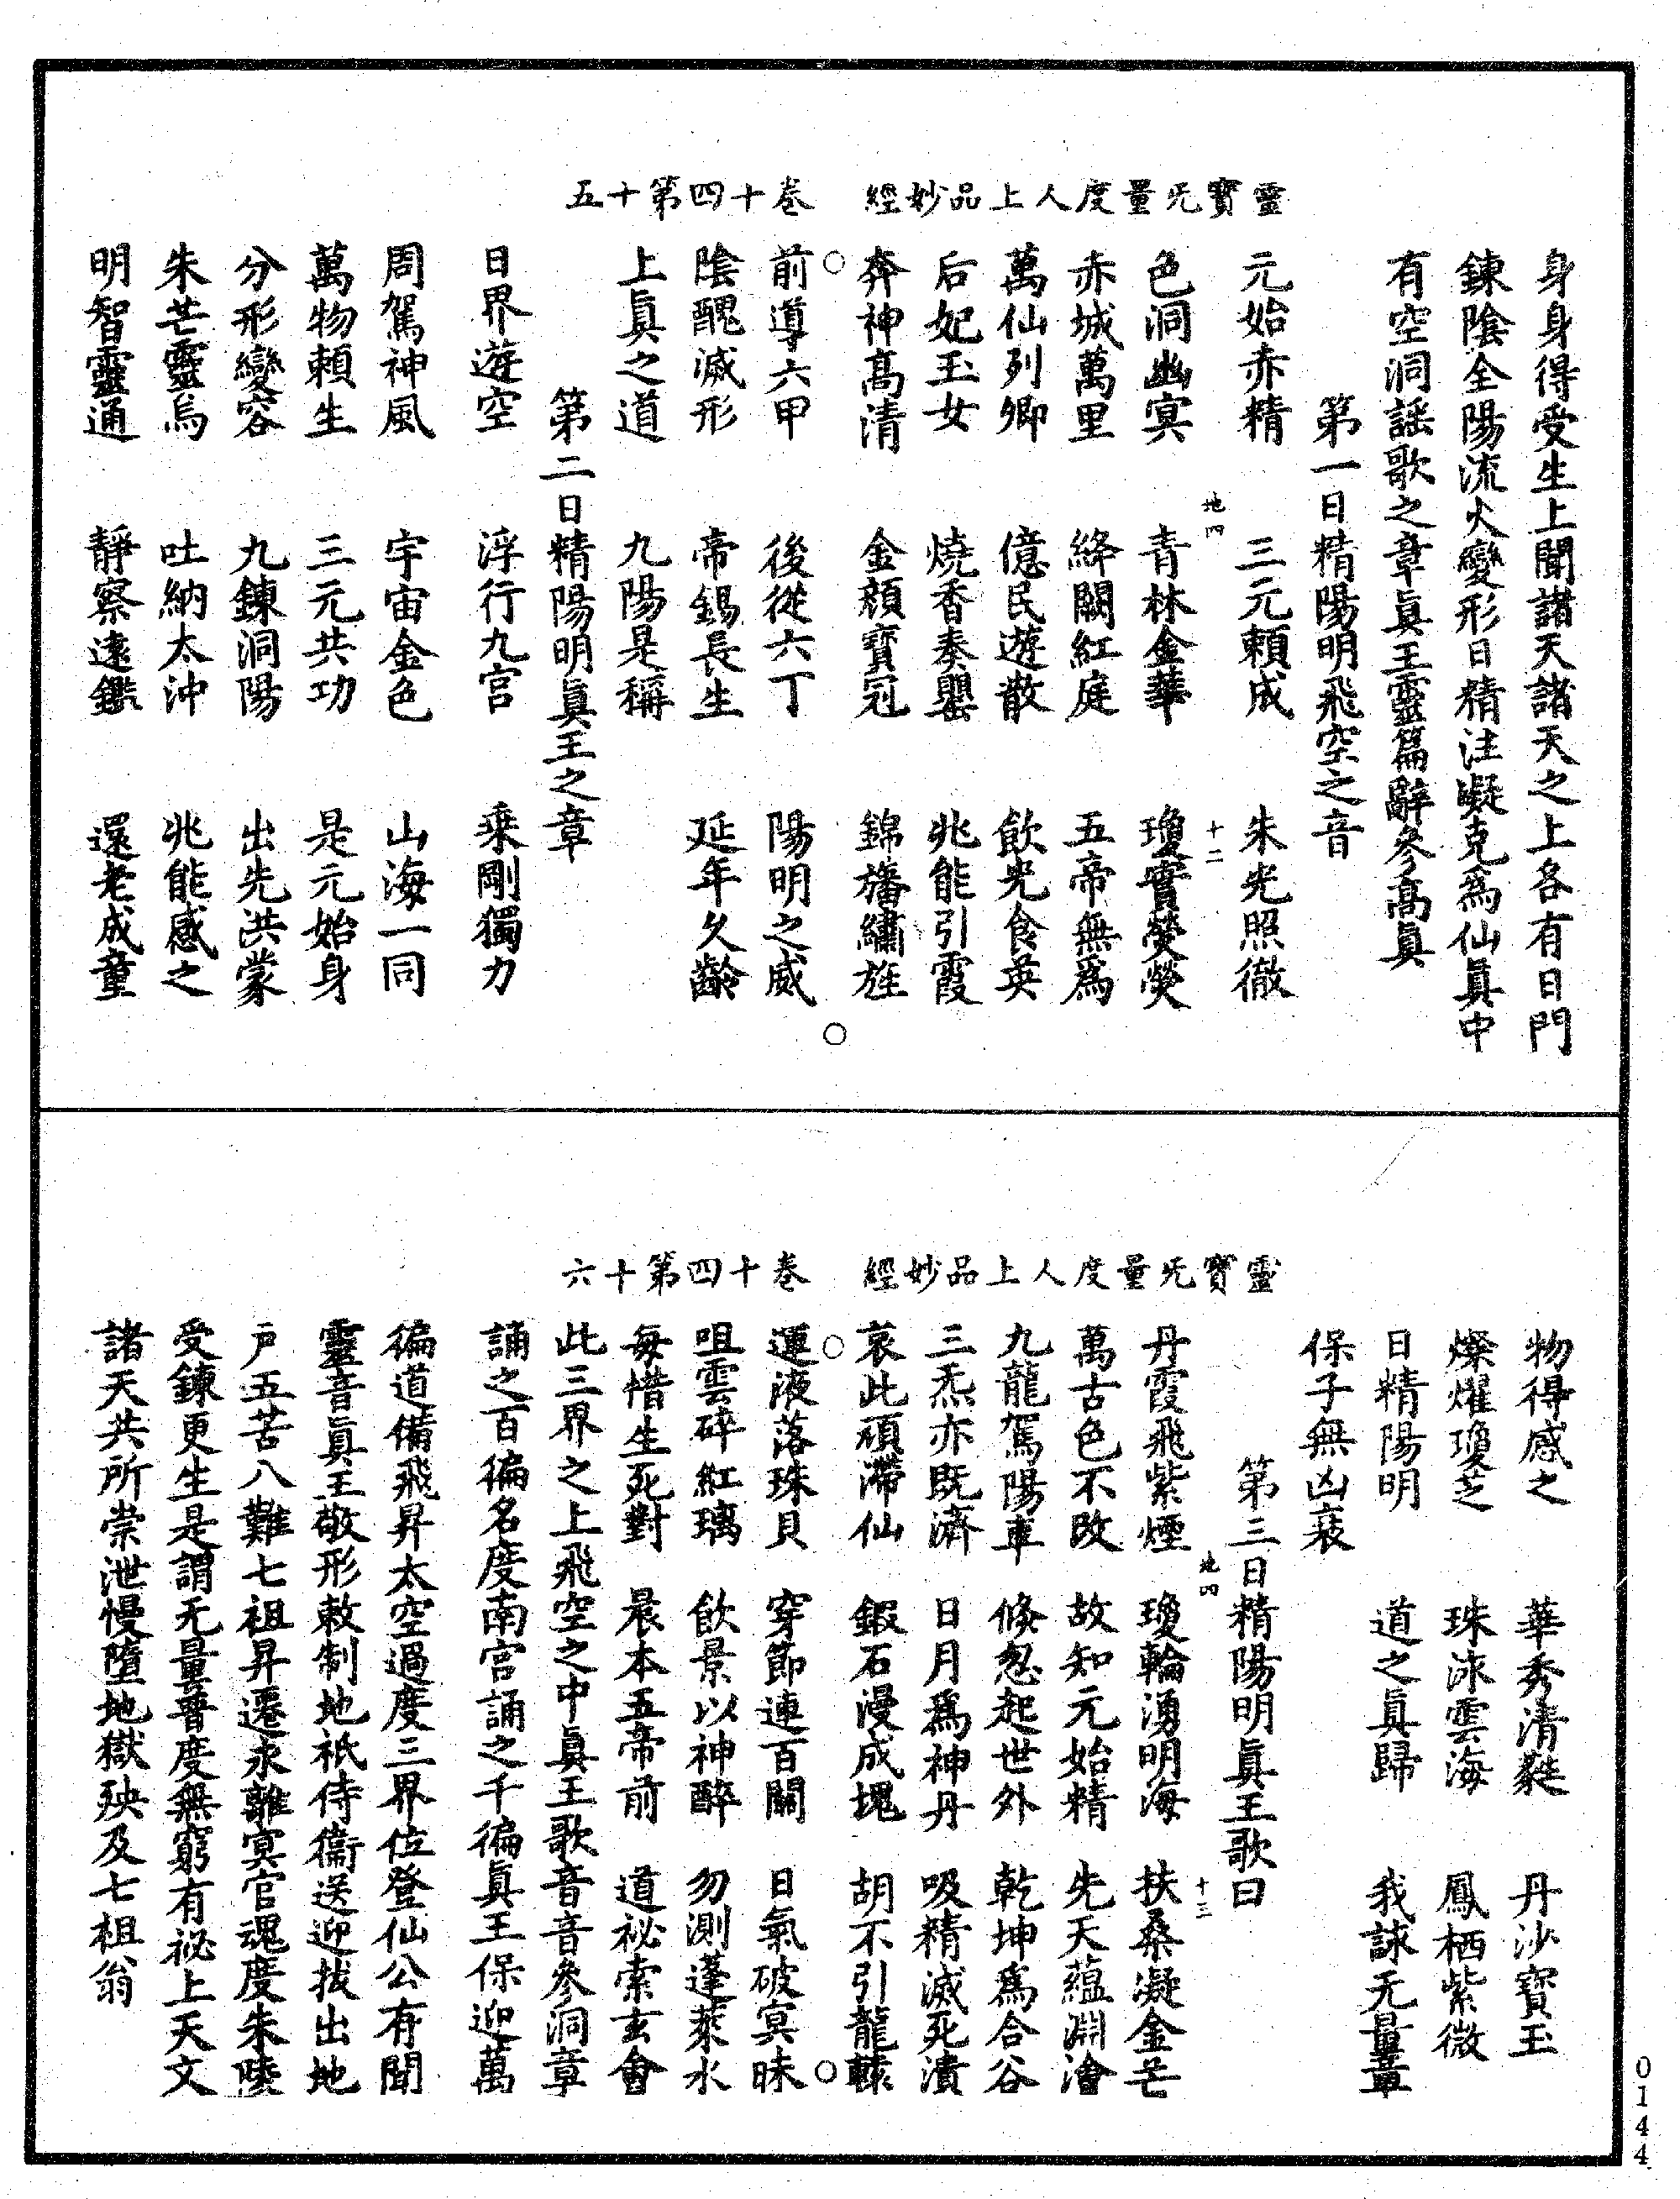 靈寶旡量度人上品妙經　卷十四第十五
身身得受生上聞諸天諸天之上各有日門
鍊陰全陽流火變形日精注凝克爲仙眞中
有空洞謡歌之章眞王靈篇辭參高眞
第一日精陽明飛空之音
元始赤精　三元賴成　朱光照徹
地四　十二
色洞幽冥　青林金華　瓊實熒熒
赤城萬里　絳闕紅庭　五帝無爲
萬仙列卿　億民遊散　飲光食英
后妃玉女　燒香奏罌　兆能引霞
奔神高清　金顔寶冠　錦旛繡旌
前導六甲　後從六丁　陽明之威
陰醜滅形　帝錫長生　延年久齡
上眞之道　九陽是稱
第二日精陽明眞王之章
日界遊空　浮行九宮　乗剛獨力
周駕神風　宇宙金色　山海一同
萬物賴生　三元共功　是元始身
分形變容　九鍊洞陽　出先洪蒙
朱芒靈烏　吐納太沖　兆能感之
明智靈通　靜察遠鑑　還老成童
靈寶旡量度人上品妙經　卷十四第十六
物得感之　華秀清蕤　丹沙寶玉
燦燿瓊芝　珠泳雲海　鳳栖紫微
日精陽明　道之眞歸　我詠无量章
保子無凶衰
第三日精陽明眞王歌曰
地四　十三
丹霞飛紫煙　瓊輪湧明海　扶桑凝金芒
萬古色不改　故知元始精　先天蘊淵澮
九龍駕陽車　倏忽起世外　乾坤爲合谷
三炁亦旣濟　日月爲神丹　吸精滅死潰
哀此頑滯仙　鍜石漫成塊　胡不引龍轅
運液落珠貝　穿節連百關　日氣破冥昧
咀雲碎紅璃　飲景以神醉　勿測蓬萊水
毎惜生死對　晨本五帝前　道祕索玄會
此三界之上飛空之中眞王歌音音參洞章
誦之百徧名度南宮誦之千徧眞王保迎萬
徧道備飛昇太空過度三界位登仙公有聞
靈音眞王敬形敕制地祇侍衞送迎拔出地
戸五苦八難七祖昇遷永離冥官魂度朱陵
受鍊更生是謂无量普度無窮有祕上天文
諸天共所崇泄慢墮地獄殃及七祖翁
0144